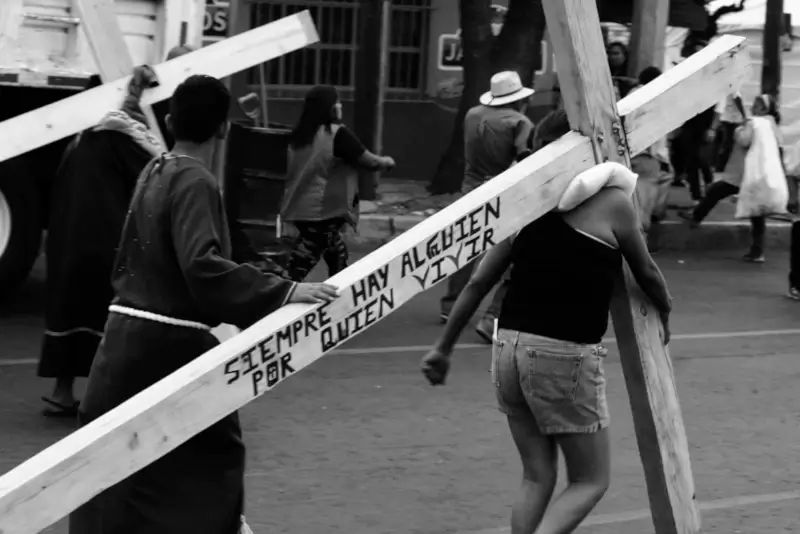 OS
SIEMPRE HAY ALGUIEN
POR QUIEN VIVIR